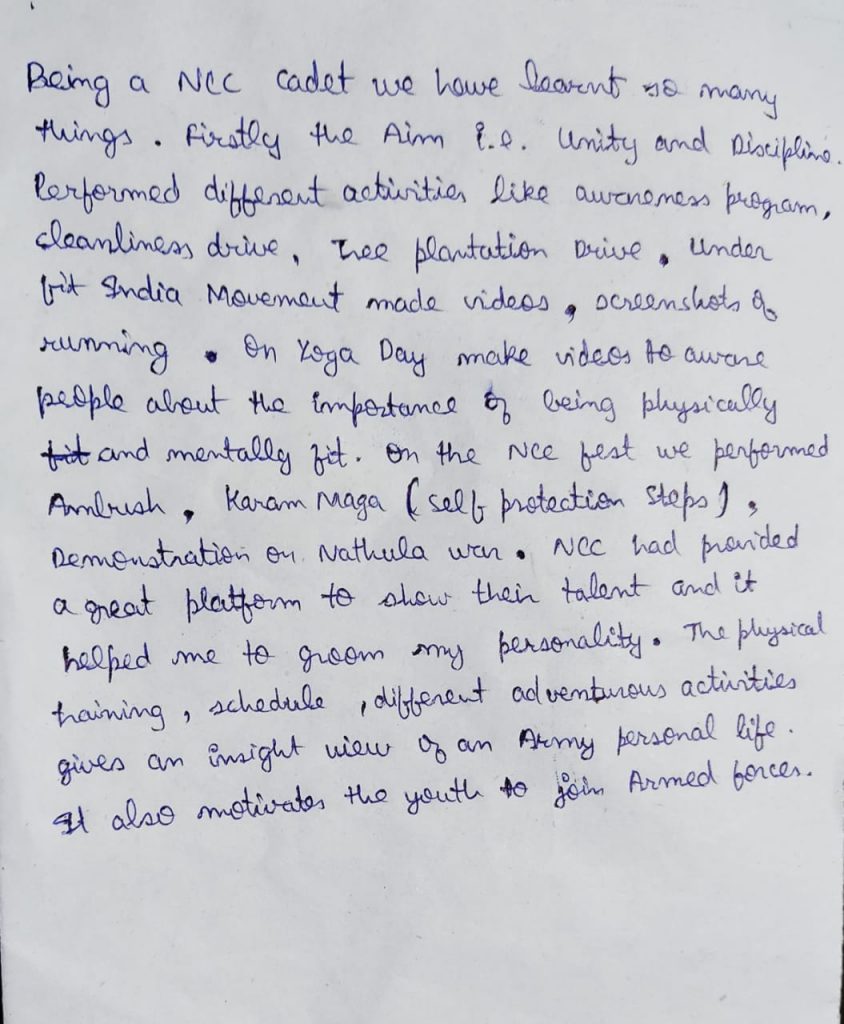 Being a NCC cadet we have learnt so many
things. Firstly the Aim i.e. Unity and Discipline.
Performed different activities like awareness program,
cleanliness drive, Tree plantation Drive, Under
fit India Movement made videos, screenshots of
running. On Yoga Day make videos to aware
people about the importance of being physically
fit and mentally fit. On the NCC fest we performed
Ambush, Karam Maga (self protection steps),
Demonstration on Nathula war. NCC had provided
a great platform to show their talent and it
helped me to groom my personality. The physical
training, schedule, different adventurous activities
gives an insight view of an Army personal life.
It also motivates the youth to join Armed forces.